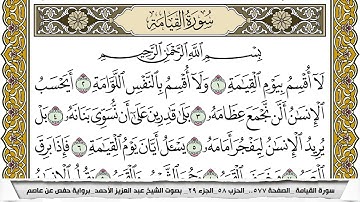 سُورَةُ الْقِيَامَةِ
بِسْمِ اللَّهِ الرَّحْمَٰنِ الرَّحِيمِ
لَا أُقْسِمُ بِيَوْمِ الْقِيَامَةِ ١ وَلَا أُقْسِمُ بِالنَّفْسِ اللَّوَّامَةِ ٢ أَيَحْسَبُ
الْإِنسَانُ أَلَّن نَّجْمَعَ عِظَامَهُ ٣ بَلَىٰ قَادِرِينَ عَلَىٰ أَن نُّسَوِّيَ بَنَانَهُ ٤ بَلْ
يُرِيدُ الْإِنسَانُ لِيَفْجُرَ أَمَامَهُ ٥ يَسْأَلُ أَيَّانَ يَوْمُ الْقِيَامَةِ ٦ فَإِذَا بَرِقَ
سورة القيامة _الصفحة ٥٧٧_ الحزب ٥٨_الجزء ٢٩_ بصوت الشيخ عبد العزيز الأحمد_برواية حفص عن عاصم